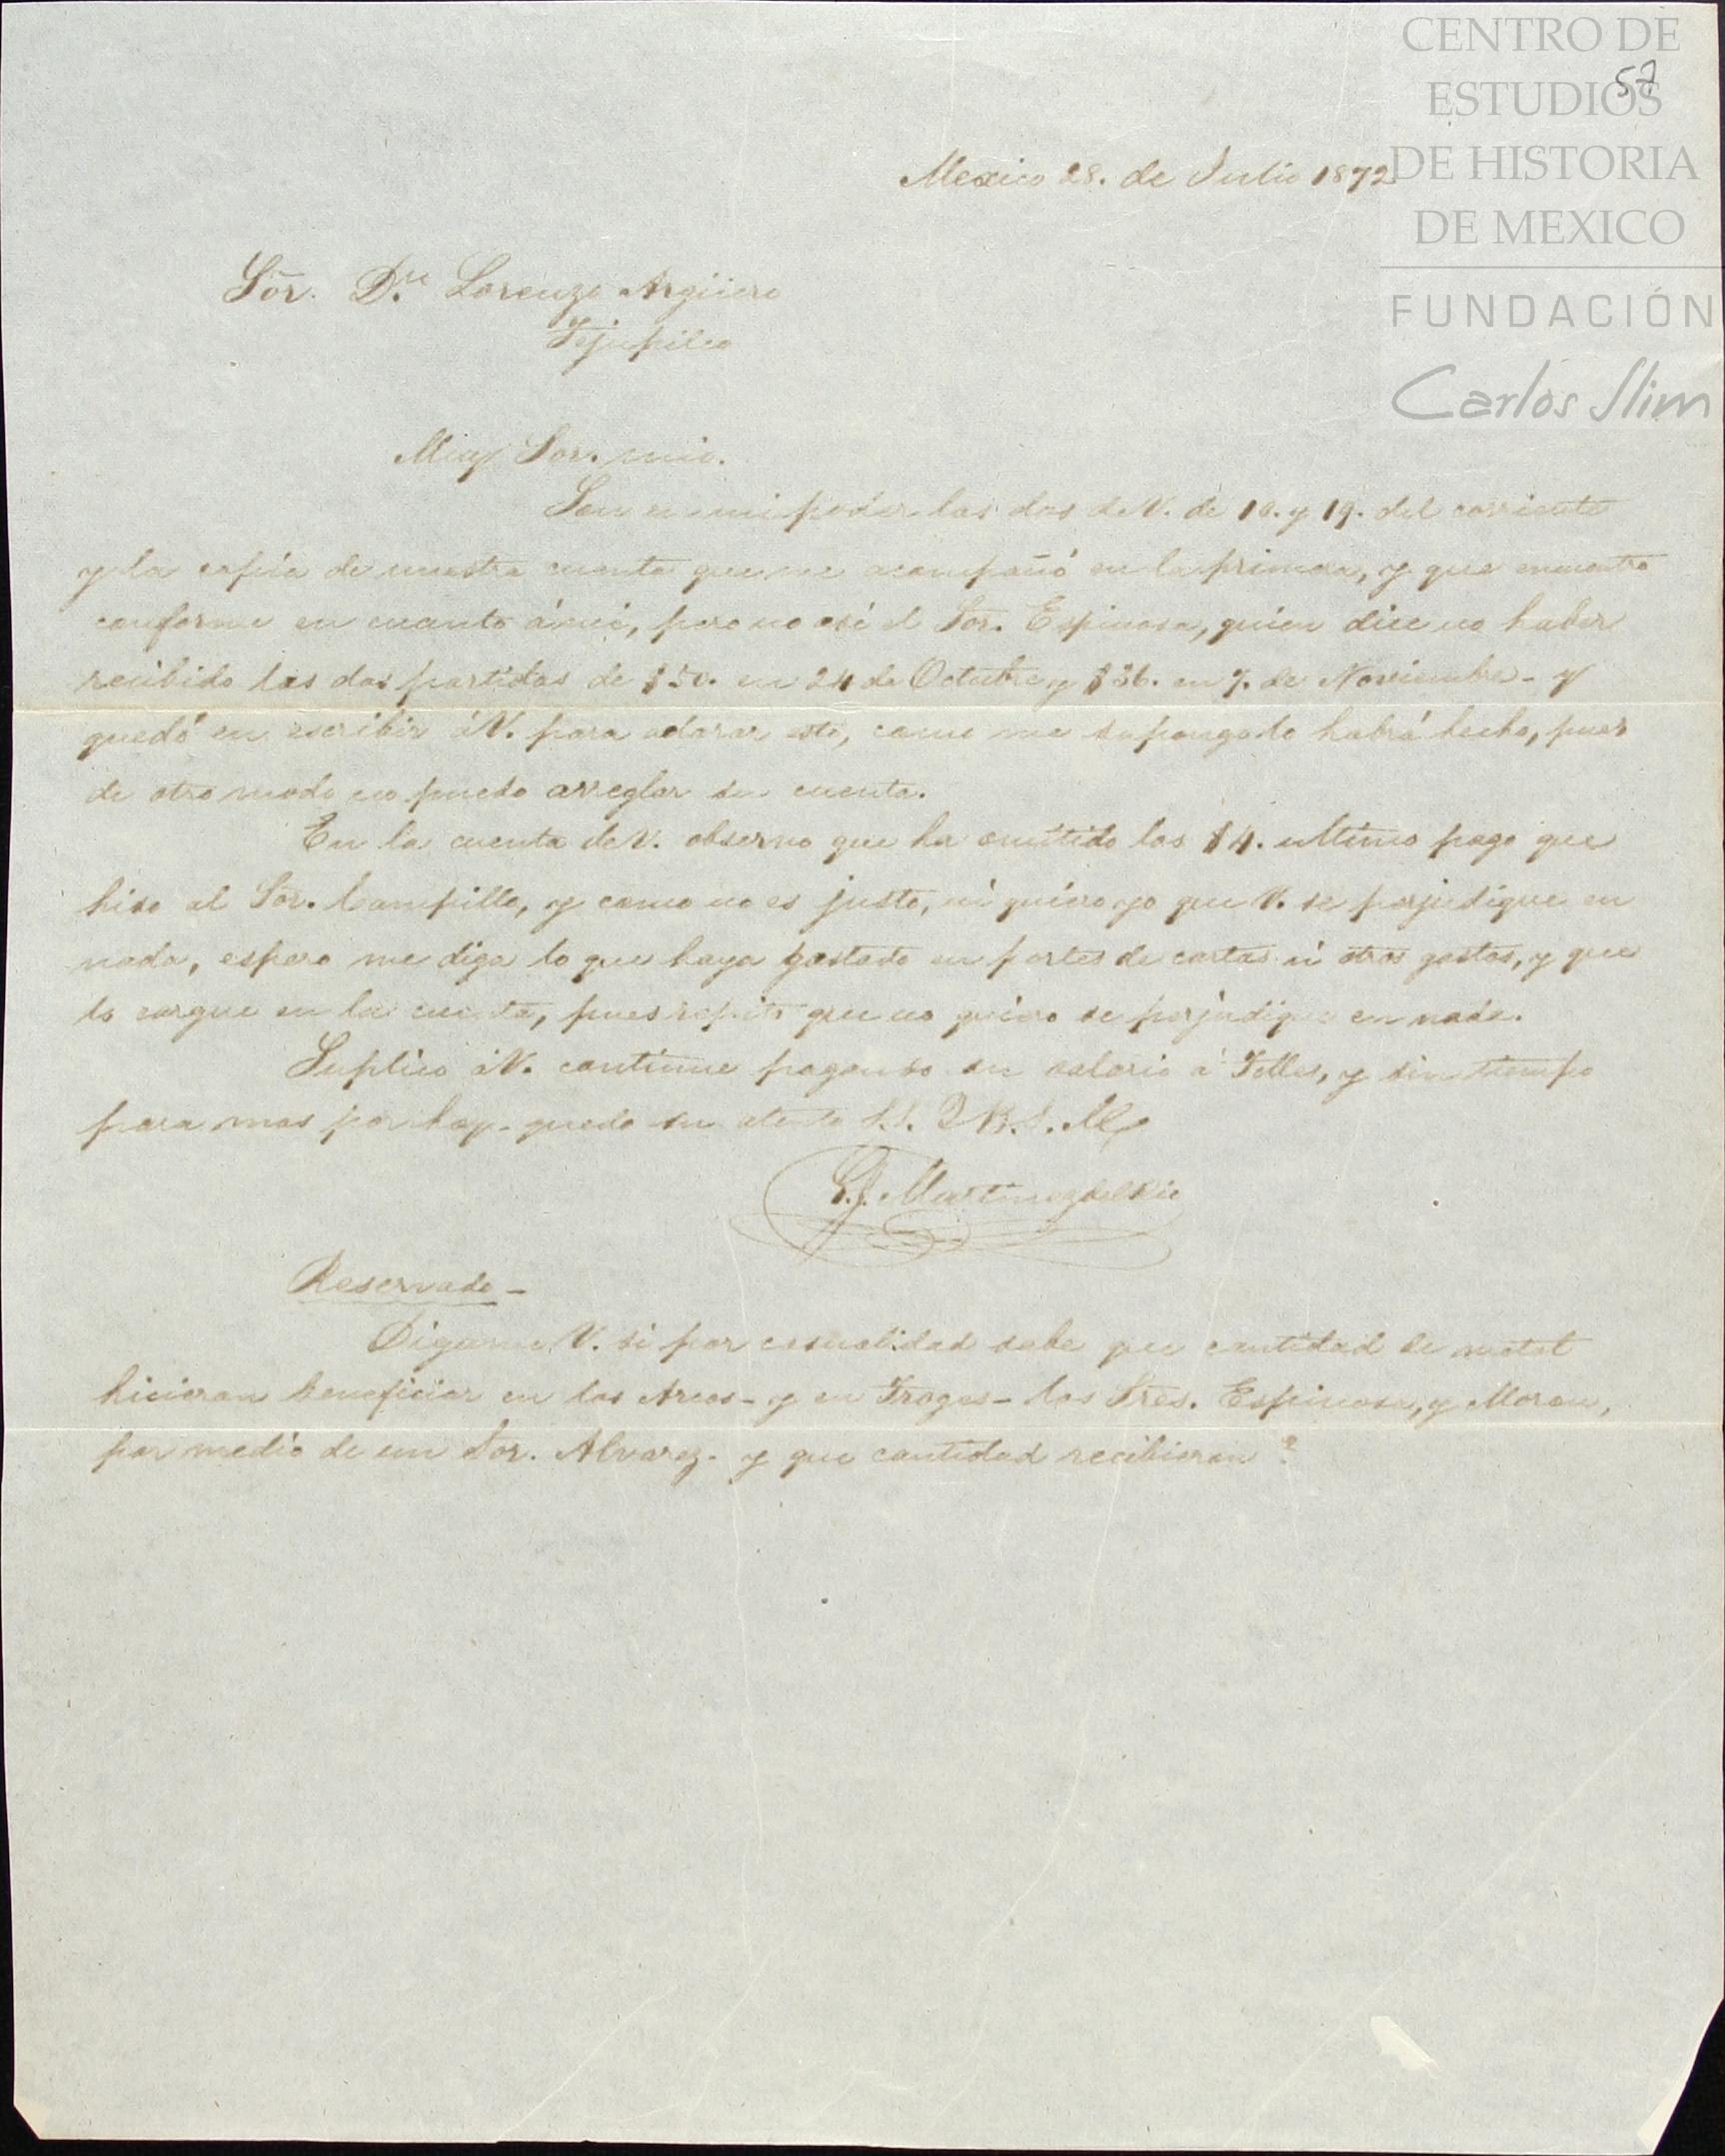 CENTRO DE
57
ESTUDIOS
DE HISTORIA
DE MEXICO
FUNDACIÓN
Carlos Slim
Mexico 28. de Julio 1872
Sõr. Dn. Lorenzo Argüero
Tejupilco
Muy Sor. mio.
Son en mi poder las dos de V. de 10. y 19. del corriente
y la copia de nuestra cuenta que me acompañó en la primera, y que encuentro
conforme en cuanto á mi, pero no asi el Sor. Espinosa, quien dice no haber
recibido las dos partidas de $50. en 24 de Octubre y $36. en 7. de Noviembre - y
quedó en escribir á V. para aclarar esto, como me supongo lo habrá hecho, pues
de otro modo no puedo arreglar su cuenta.
En la cuenta de V. observo que ha omitido los $4. ultimo pago que
hiso al Sor. Campillo, y como no es justo, ni quiero yo que V. se perjudique en
nada, espero me diga lo que haya gastado en portes de cartas ú otros gastos, y que
lo cargue en la cuenta, pues repito que no quiero se perjudique en nada.
Suplico á V. continue pagando su salario á Telles, y sin tiempo
para mas por hoy - quedo su atento S.S. Q B.S.M.
Martinez del Rio
Reservado -
Digame V. si por casualidad sabe que cantidad de metal
hicieron beneficiar en los Arcos - y en Trojes - los Sres. Espinosa, y Moron,
por medio de un Sor. Alvarez - y que cantidad recibieron?